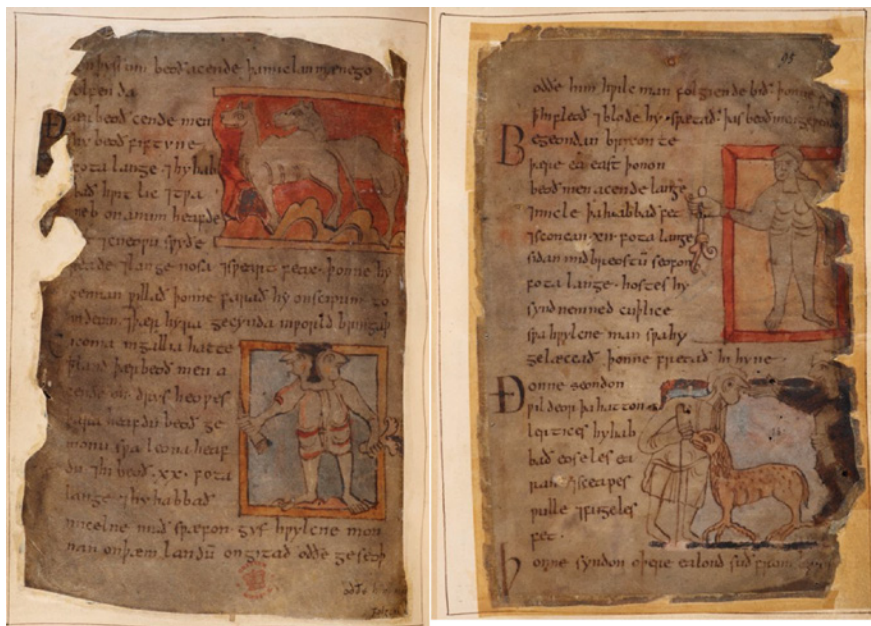 þyssum beoð acende þa miclan mænego
olfenda
beoð cende men
hy beoð fiftyne
fota lange ⁊ hy hab
bað hƿit lic ⁊ tƿa
neb on anum heafde
⁊ cneoƿu sƿyðe
reade ⁊ lange nosa ⁊ sƿeart feax · þonne hy
cennan ƿillað þonne farað hy on scipum to
indeum ⁊ þær hyra gecynda in ƿorld bringaþ
Ciconia in gallia hatte
þ land þær beoð men a
cende on drys heoƿes
þara heafdu beoð ge
monu sƿa leona heaf
du ⁊ hi beoð · xx · fota
lange ⁊ hy habbað
micelne muð sƿa fon · gyf hƿylcne mon
nan on þæm landū ongitað oððe geseoþ
oððe him
95
oððe him hƿilc man folgiende bið · þonne
⁊ blode hy sƿætað · þas beoð men geƿende
Begeondan brixonte
þære ea east þonon
beoð men acende lange
⁊ micle þa habbað fet
⁊ sceoncan · xii · fota lange
sidan mid breostū seofon
fota lange · hostes hy
synd nemned cuþlice
sƿa hƿylcne man sƿa hy
gelæccað þonne fretað hi hyne ·
Ðonne seondon
ƿildeor þa hatton
lertices hy hab
bað eoseles ea
ran ⁊ sceapes
ƿulle ⁊ fugeles
fet ·
Þonne syndon oþere ealond suð fram